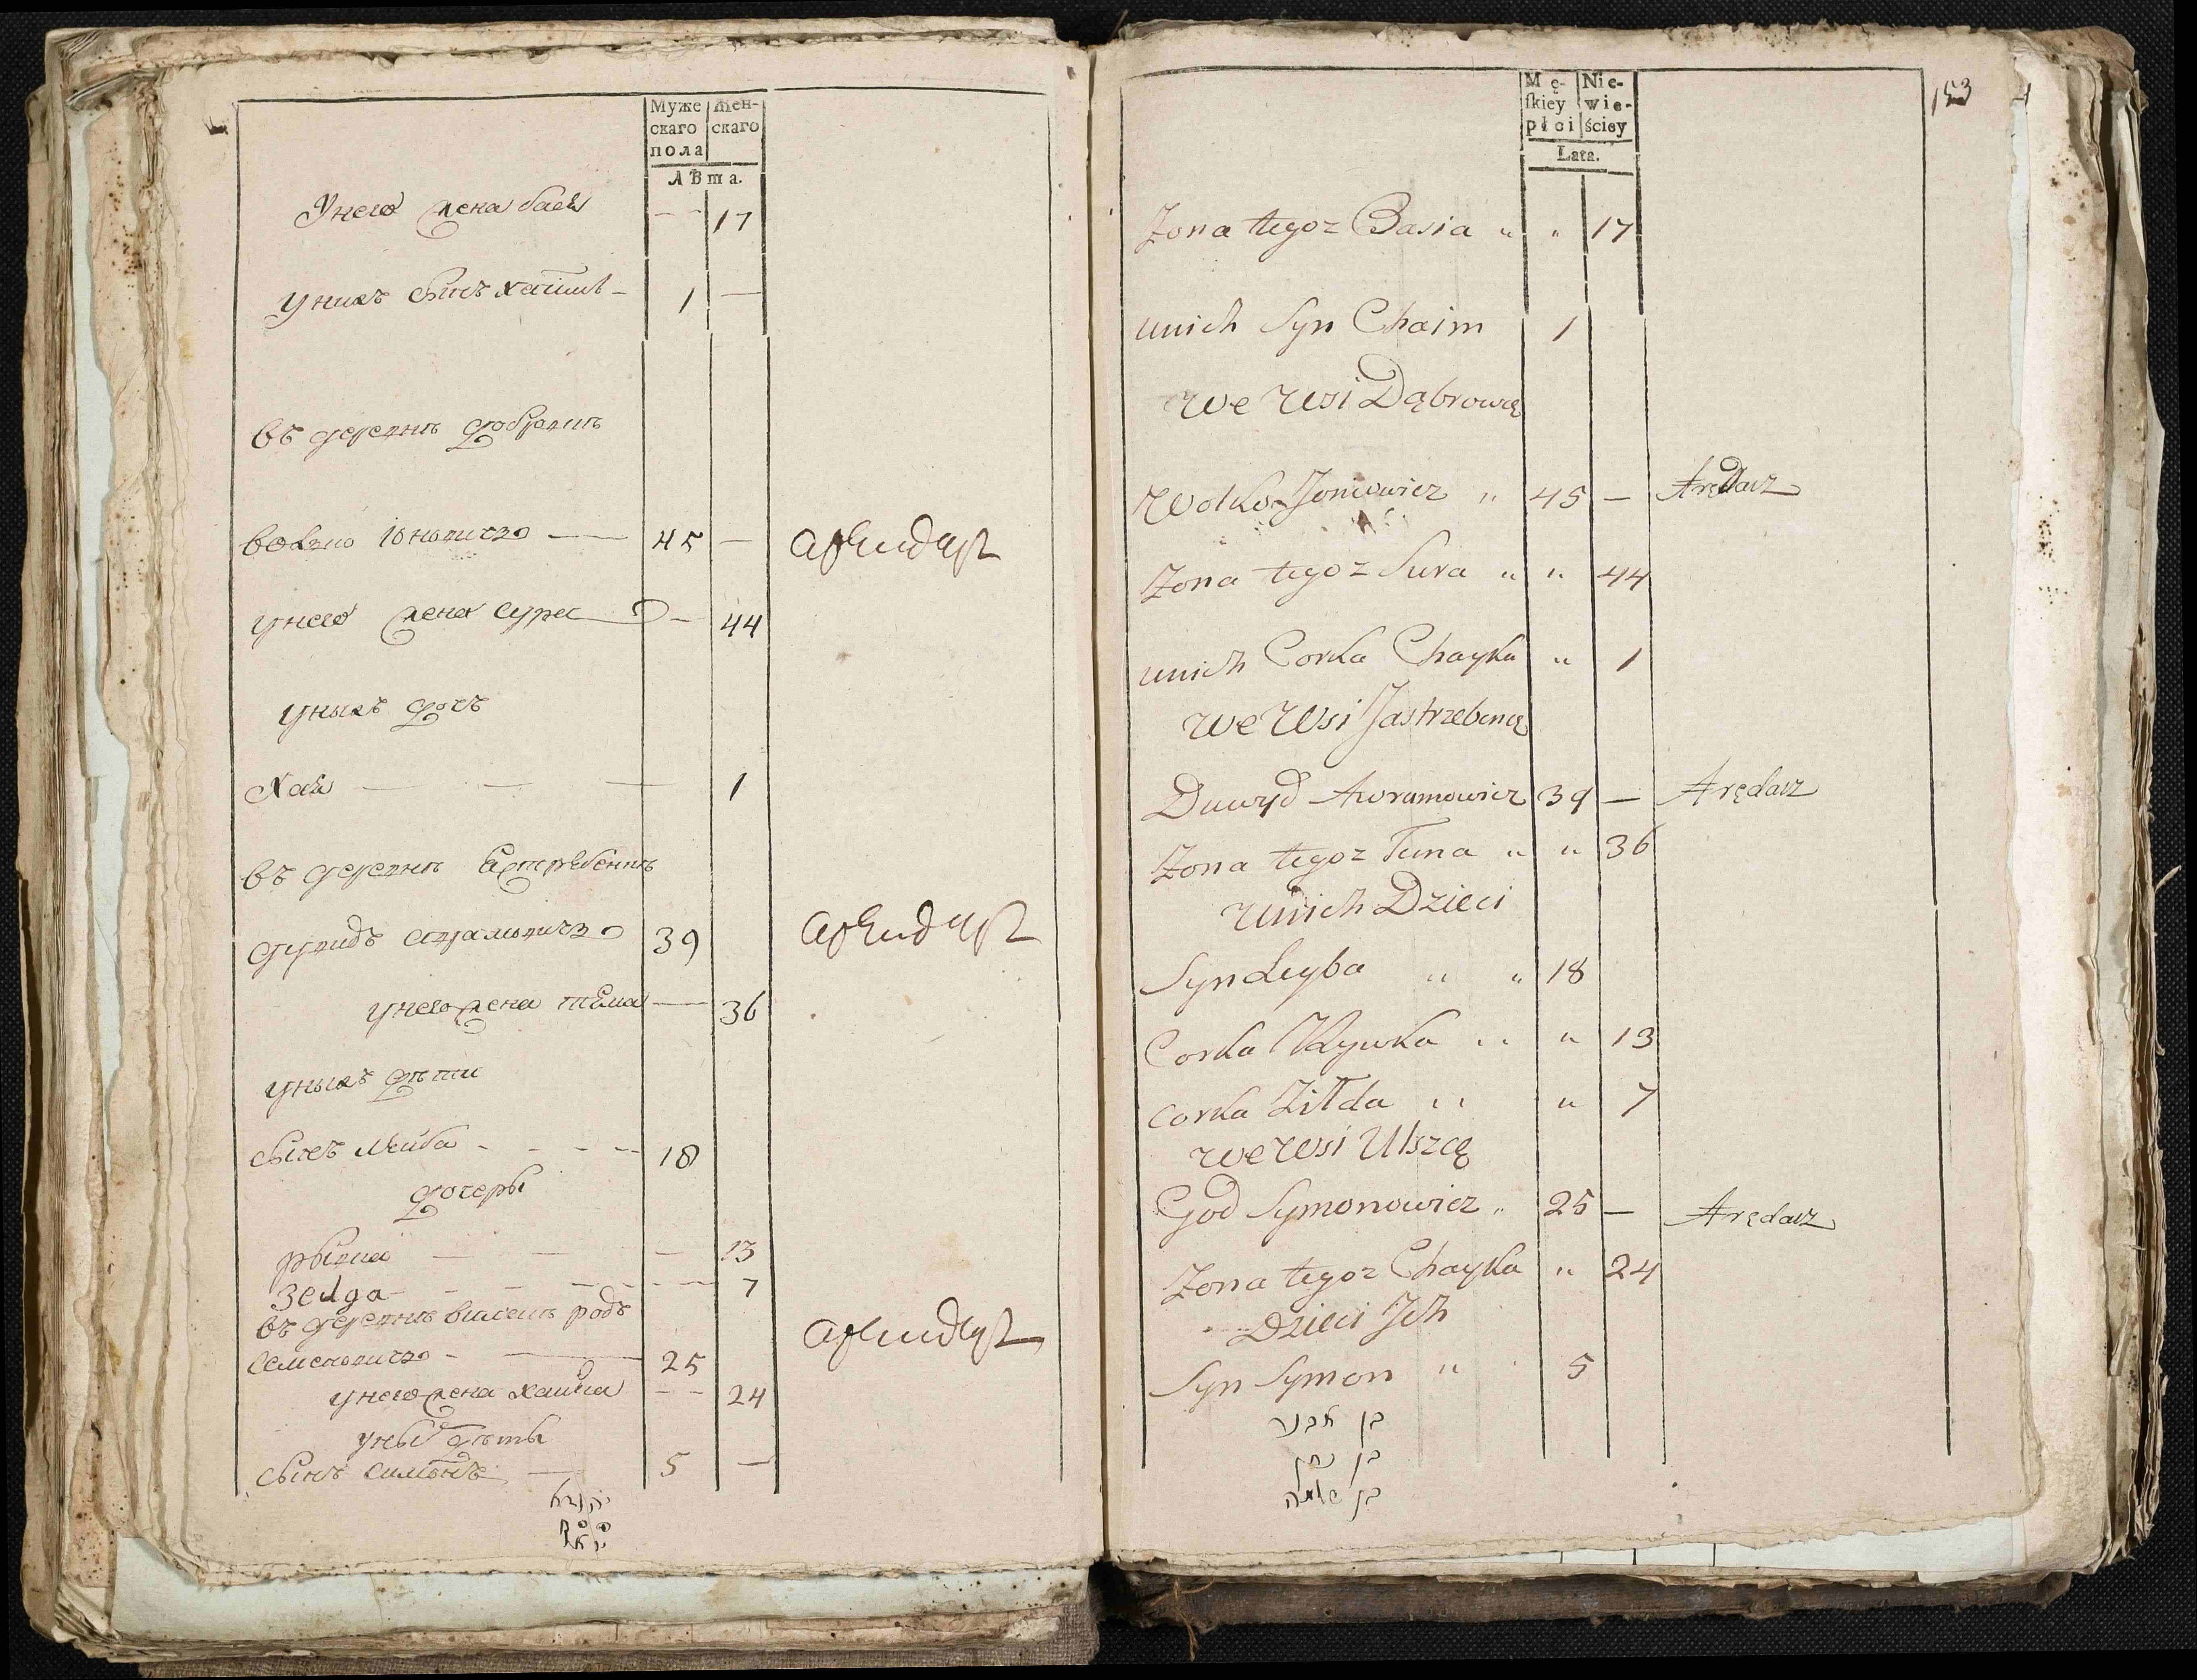 Муже скаго пола
Жен- скаго
Лѣта.
У него жена бася — 17
У нихъ сынъ хаимъ — 1 —
въ деревнѣ добровѣ
Волко Юновичъ — 45 — арендарь
у него жена сура — 44
у ныхъ дочь
Хая — 1
въ деревнѣ Ястребенѣ
Дувидъ аврамовичъ 39 арендарь
у него жена тема — 36
у ныхъ дѣти
сынъ лейба - - - - 18
дочеры
рывка — — — 13
зелда - - - - 7
въ деревнѣ годъ
семеновичъ - — 25 арендарь
у него жена хайка -- 24
у ных дѣты
сынъ симонъ — 5 —
Mę- skiey płci
Nie- wie- ściey
Lata.
153
Zona tegoz Basia " " 17
unich Syn Chaim 1
We Wsi Dąbrowię
Wolko Joniowicz " 45 — Arędarz
Zona tegoz Sura " " 44
unich Corka Chayka " 1
We Wsi Jastrzebinię
Duwyd Awramowicz 39 — Arędarz
Zona tegoz Tema " " 36
Unich Dzieci
Syn Leyba " " 18
Corka Rywka " " 13
Corka Zilda " " 7
We Wsi Ulszcę
God Symonowicz " 25 — Arędarz
Zona tegoz Chayka " 24
Dzieci Jch
Syn Symon " 5
בן אבנר
בן נתן
בן שלמה